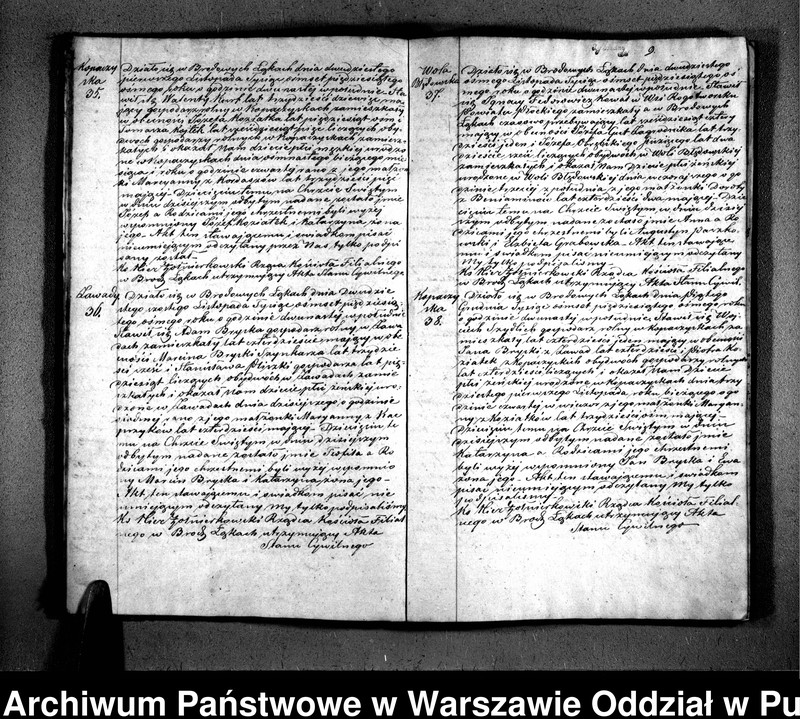 Kopaczy
ska
35.
Działo się w Brodowych Łąkach dnia dwudziestego
pierwszego Listopada tysiąc ośmset pięćdziesiątego
ósmego roku o godzinie dwunastej w południe. Sta
wił się Walenty Kurt lat trzydzieści dziewięć ma
jący gospodarz rolny w Kopaczyskach zamieszkały
w obecności Józefa Koziatka lat pięćdziesiąt ośm i
Tomasza Kaczek lat pięćdziesiąt pięć liczących oby
dwóch gospodarzy rolnych w Kopaczyskach zamiesz
kałych i okazał Nam dziecię płci męzkiej urodzo
ne w Kopaczyskach dnia osmnastego bieżącego mie
siąca i roku o godzinie czwartej rano z jego małżon
ki Maryanny z Kordaszów lat trzydzieści pięć
mającej. Dziecięciu temu na Chrzcie Świętym
w dniu dzisiejszym odbytym nadane zostało imie
Józef a Rodzicami jego chrzestnemi byli wyżej
wspomniony Józef Koziatek i Katarzyna żona
jego. Akt ten stawającemu i świadkom pisać
nieumiejącym odczytany przez Nas tylko podpi
sany został
Ks Kier Żołnierkowski Rządca Kościoła Filialnego
w Brod. Łąkach utrzymujący Akta Stanu Cywilnego
Zawady
36.
Działo się w Brodowych Łąkach dnia Dwudzie
stego szóstego Listopada tysiąc ośmset pięćdziesią
tego ósmego roku o godzinie dwunastej w południe
Stawił się Adam Bryska gospodarz rolny w Zawa
dach zamieszkały lat czterdzieści mający w obe
cności Marcina Bryski Szynkarza lat trzydzie
ści sześć i Stanisława Pliszki gospodarza lat pięć
dziesiąt liczących obydwóch w Zawadach zamie
szkałych i okazał Nam dziecie płci żeńskiej uro
dzone w Zawadach dnia dzisiejszego o godzinie
siódmej rano z jego małżonki Maryanny z Kac
przyków lat czterdzieści mającej. Dziecięciu te
mu na Chrzcie Świętym w dniu dzisiejszym
odbytym nadane zostało imie Teofila a Ro
dzicami jego chrzestnemi byli wyżej wspomnio
ny Marcin Bryska i Katarzyna żona jego
Akt ten stawającemu i świadkom pisać nie
umiejącym odczytany, My tylko podpisaliśmy
Ks Kier Żołnierkowski Rządca Kościoła Filial
nego w Brod. Łąkach utrzymujący Akta
Stanu Cywilnego
9.
Wola
Błędowska
37.
Działo się w Brodowych Łąkach dnia dwudziestego
ósmego Listopada tysiąc ośmset pięćdziesiątego ós
mego roku o godzinie dwunastej w południe. Stawił
się Ignacy
zamieszkały a w Brodowych
Łąkach czasowo przebywający lat sześćdziesiąt cztery
mający w obecności Józefa
dzieści jeden i Józefa
dzieście sześć liczących obydwóch w Woli Błędowskiej
zamieszkałych i okazał Nam dziecie płci żeńskiej
urodzone w Woli Błędowskiej dnia wczorajszego o go
dzinie trzeciej z południa z jego małżonki Doroty
z Beniaminów lat czterdzieści dwa mającej. Dzie
cięciu temu na Chrzcie Świętym w dniu dzisiej
szym odbytym nadane zostało imie Anna a Ro
dzicami jego chrzestnemi byli Augustyn
i Elżbieta Grabowska. Akt ten stawające
mu i świadkom pisać nieumiejącym odczytany
My tylko podpisaliśmy
Ks Kier Żołnierkowski Rządca Kościoła Filialnego
w Brod. Łąkach utrzymujący Akta Stanu Cywil.
Kopaczy
ska
38.
Działo się w Brodowych Łąkach dnia piątego
Grudnia tysiąc ośmset pięćdziesiątego ósmego roku
o godzinie dwunastej w południe. Stawił się Woj
ciech Szydlich gospodarz rolny w Kopaczyskach za
mieszkały lat czterdzieści jeden mający w obecności
Jana Bryski z Zawad lat czterdzieści i Piotra Ko
ziatek z Kopaczysk obydwóch gospodarzy rolnych
lat czterdzieści liczących i okazał Nam Dziecie
płci żeńskiej urodzone w Kopaczyskach dnia trzy
dziestego pierwszego Listopada roku bieżącego o go
dzinie czwartej w wieczór z jego małżonki Maryan
ny z Koziatków lat trzydzieści ośm mającej
Dziecięciu temu na Chrzcie Świętym w dniu
dzisiejszym odbytym nadane zostało imie
Katarzyna a Rodzicami jego chrzestnemi
byli wyżej wspomniony Jan Bryska i Ewa
żona jego. Akt ten stawającemu i świadkom
pisać nieumiejącym odczytany My tylko
podpisaliśmy
Ks Kier Żołnierkowski Rządca Kościoła Filial
nego w Brod. Łąkach utrzymujący Akta
Stanu Cywilnego
Archiwum Państwowe w Warszawie Oddział w Pu